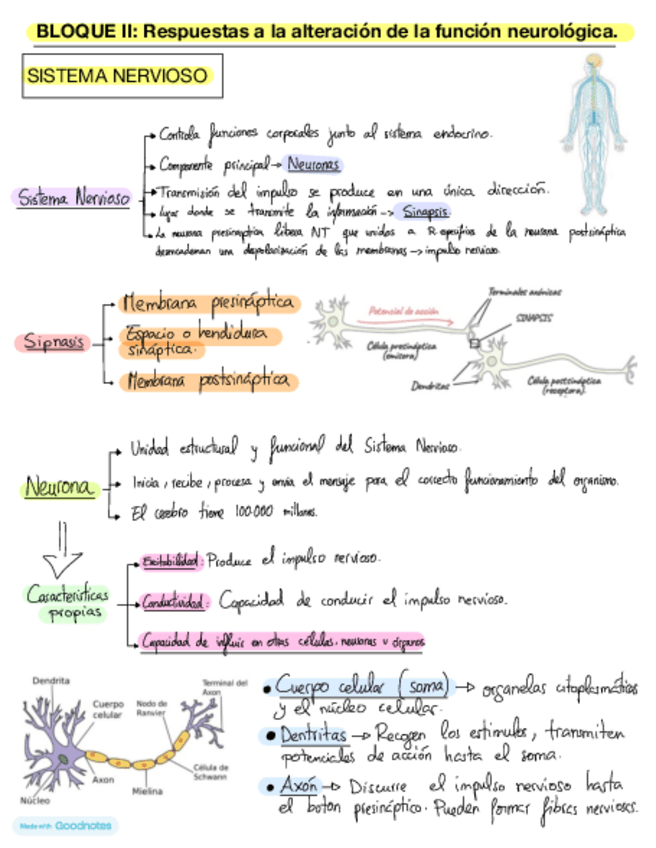 BLOQUE II: Respuestas a la alteración de la función neurológica.
SISTEMA NERVIOSO
Controla funciones corporales junto al sistema endocrino.
Componente principal → Neuronas
Sistema Nervioso
Transmisión del impulso se produce en una única dirección.
lugar donde se transmite la información → Sinapsis.
La neurona presináptica libera NT que unidos a R específicos de la neurona postsináptica
desencadenan una depolarización de las membranas → impulso nervioso.
Sipnasis
Membrana presináptica
Espacio o hendidura
sináptica.
Membrana postsináptica
Terminales axónicas
Potencial de acción
SINAPSIS
Célula presináptica
(emisora)
Dendritas
Célula postsináptica
(receptora)
Neurona
Unidad estructural y funcional del Sistema Nervioso.
Inicia, recibe, procesa y envia el mensaje para el correcto funcionamiento del organismo.
El cerebro tiene 100.000 millones.
Características
propias
Excitabilidad: Produce el impulso nervioso.
Conductividad: Capacidad de conducir el impulso nervioso.
Capacidad de influir en otras células, neuronas y órganos
Dendrita
Cuerpo
celular
Nodo de
Ranvier
Terminal del
Axon
Célula de
Schwann
Axon
Mielina
Núcleo
• Cuerpo celular (soma) → organelas citoplasmáticas
y el núcleo celular.
• Dentritas → Recogen los estimulos, transmiten
potenciales de acción hasta el soma.
• Axón → Discurre el impulso nervioso hasta
el boton presináptico. Pueden formar fibras nerviosas.
Made with Goodnotes